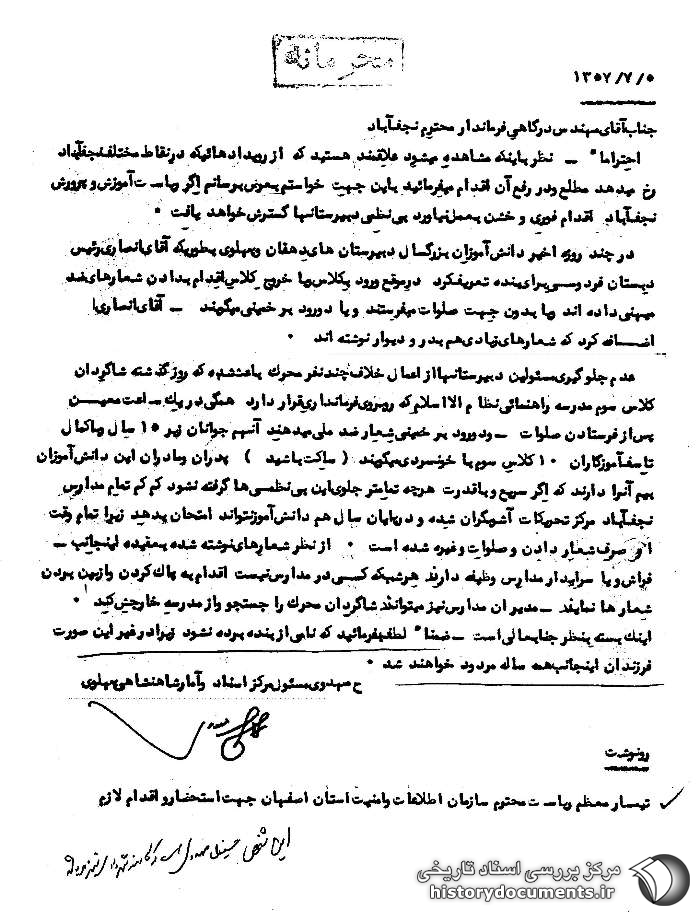 محرمانه
۱۳۵۷/۷/۵
جناب آقای مهندس درگاهی فرماندار محترم نجف‌آباد
احتراما" – نظر باینکه مشاهده میشود علاقمند هستید که از رویدادهائیکه در نقاط مختلف نجف‌آباد
رخ میدهد مطلع و در رفع آن اقدام میفرمائید باین جهت خواستم بعرض برسانم اگر ریاست آموزش و پرورش
نجف‌آباد اقدام فوری و خشن بعمل نیاورد بی نظمی دبیرستانها گسترش خواهد یافت .
در چند روزه اخیر دانش‌آموزان بزرگسال دبیرستان های دهقان و پهلوی بطوریکه آقای انصاری رئیس
دبستان فردوسی برای بنده تعریف کرد در موقع ورود بکلاس و یا خروج کلاس اقدام بدادن شعارهای ضد
میهنی داده اند و یا بدون جهت صلوات میفرستند و یا درود بر خمینی میگویند – آقای انصاری
اضافه کرد که شعارهای زیادی هم بدر و دیوار نوشته اند .
عدم جلوگیری مسئولین دبیرستانها از اعمال خلاف چند نفر محرک باعث شده که روز گذشته شاگردان
کلاس سوم مدرسه راهنمائی نظام الاسلام که روبروی فرمانداری قرار دارد همگی در یک ساعت معین
پس از فرستادن صلوات – و درود بر خمینی شعار ضد ملی میدهند آنهم جوانان زیر ۱۵ سال و با کمال
تاسف آموزگاران ۱۰ کلاس سوم با خونسردی میگویند ( ساکت باشید ) پدران و مادران این دانش‌آموزان
بیم آنرا دارند که اگر سریع و با قدرت هرچه تمامتر جلوی این بی نظمی‌ها گرفته نشود کم کم تمام مدارس
نجف‌آباد مرکز تحریکات آشوبگران شده و در پایان سال هم دانش‌آموز نتواند امتحان بدهد زیرا تمام وقت
او صرف شعار دادن و صلوات و غیره شده است . از نظر شعارهای نوشته شده بعقیده اینجانب –
فراش و یا سرایدار مدارس وظیفه دارند هر شب که کسی در مدارس نیست اقدام به پاک کردن و از بین بردن
شعارها نمایند – مدیران مدارس نیز میتوانند شاگردان محرک را جستجو و از مدرسه خارجش کنید .
اینک بسته بنظر جنابعالی است – ضمنا" لطف بفرمائید که نامی از بنده برده نشود زیرا در غیر این صورت
فرزندان اینجانب همه ساله مردود خواهند شد .
ح مهدوی مسئول مرکز اسناد و آمار شاهنشاهی پهلوی
رونوشت
تیمسار معظم ریاست محترم سازمان اطلاعات و امنیت استان اصفهان جهت استحضار و اقدام لازم
این شخص
مرکز بررسی اسناد تاریخی
historydocuments.ir